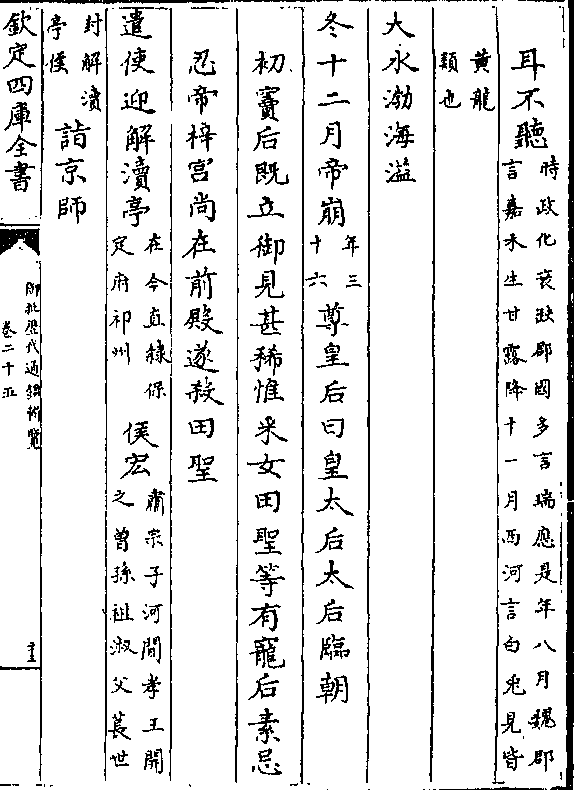 耳不聽時政化衰缺郡國多言瑞應是年八月魏郡
言嘉禾生甘露降十一月西河言白兎見皆
黃龍
類也
大水渤海溢
冬十二月帝崩年三
十六尊皇后曰皇太后太后臨朝
初竇后既立御見甚稀惟采女田聖等有寵后素忌
忍帝梓宮尚在前殿遂殺田聖
遣使迎解瀆亭在今直隸保
定府祁州侯宏肅宗子河間孝王開
之曾孫祖淑父萇世
封解瀆
亭侯詣京師
欽定四庫全書
御批歷代通鑑輯覽
卷二十五